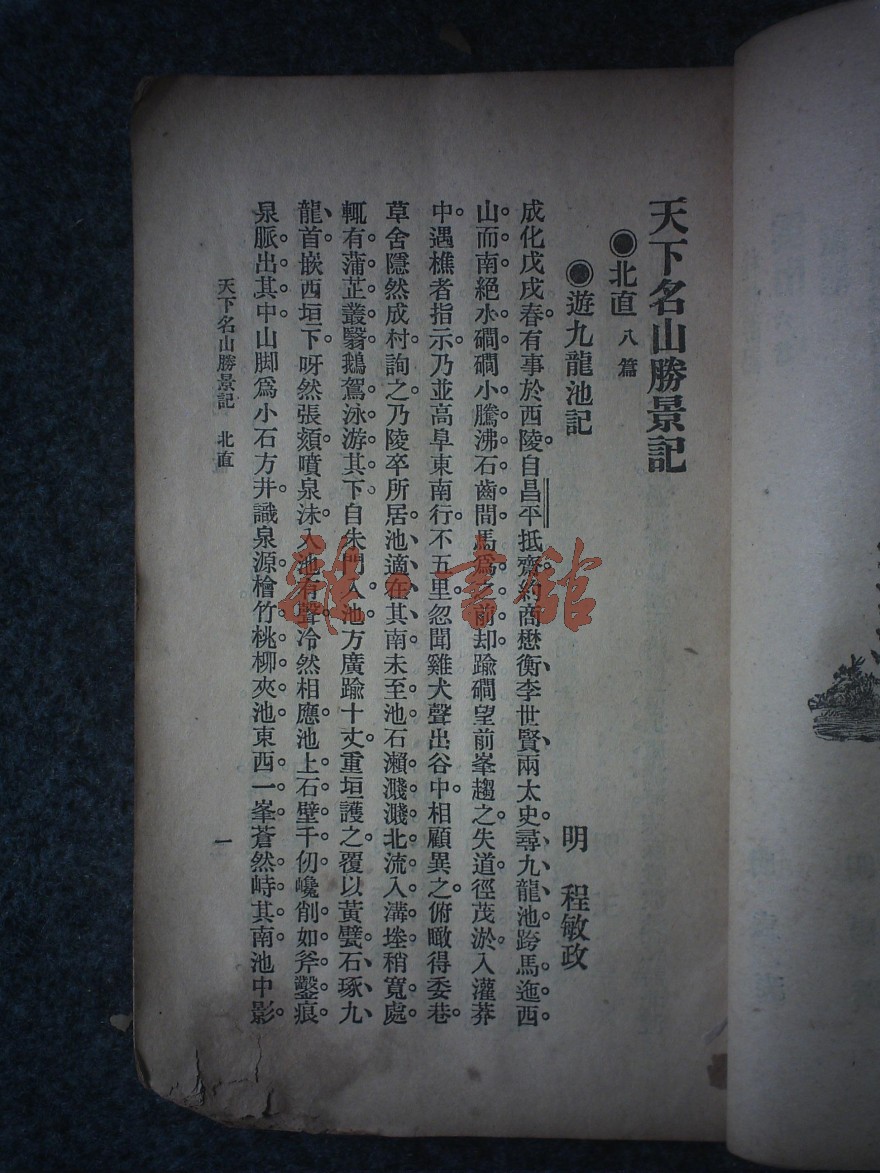 天下名山勝景記
●北直 八篇
●遊九龍池記
明 程敏政
成化戊戌春。有事於西陵。自昌平抵齋。約商懋衡、李世賢、兩太史。尋九龍池。跨馬迤西
山而南。絕水磵。磵小騰沸石齒間。馬爲之前却。踰磵望前峯趨之。失道。徑茂淤。入灌莽
中。遇樵者指示。乃並高阜東南行。不五里。忽聞雞犬聲出谷中。相顧異之。俯瞰得委巷。
草舍隱然成村。詢之。乃陵卒所居。池適在其南。未至池。石瀨濺濺。北流入溝塍。稍寬處。
輒有蒲芷叢翳。鵝鴐泳游其下。自朱門入。池方廣踰十丈。重垣護之。覆以黃甓。石琢九
龍、首嵌西垣下。呀然張頦噴泉。沫入池有聲。冷然相應。池上石壁千仞。巉削如斧鑿痕。
泉脈出其中。山脚爲小石方井。識泉源。檜竹桃柳。夾池東西。一峯蒼然。峙其南。池中影
天下名山勝景記 北直
一
雜·書館